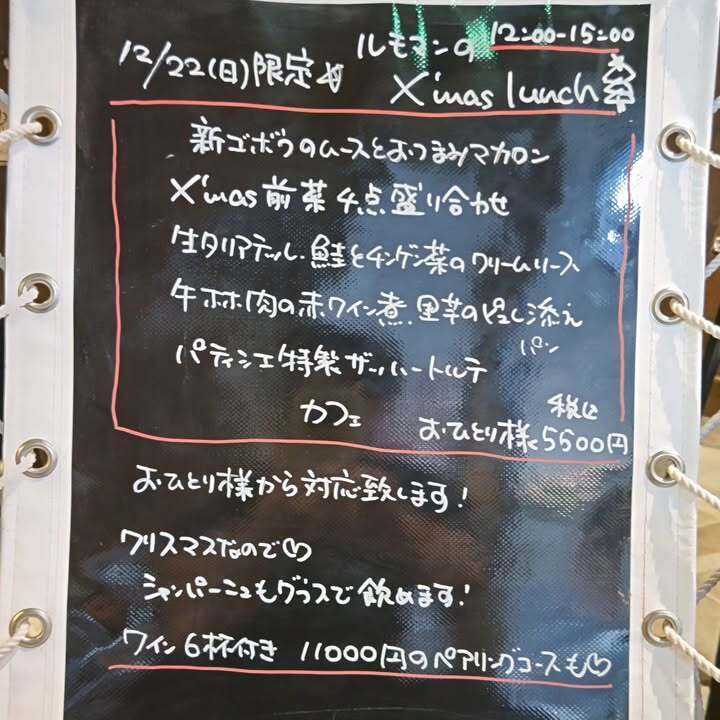 12/22(日)限定 ルモマンの 12:00-15:00
X'mas lunch
新ゴボウのムースとおつまみマカロン
X'mas前菜4点盛り合わせ
生タリアテッル・鮭とチンゲン菜のクリームソース
牛ホホ肉の赤ワイン煮・里芋のピュレ添え
パン
パティシエ特製ザッハートルテ
カフェ
税込
おひとり様 5500円
おひとり様から対応致します!
クリスマスなので♡
シャンパーニュもグラスで飲めます!
ワイン6杯付き 11000円のペアリングコースも♡